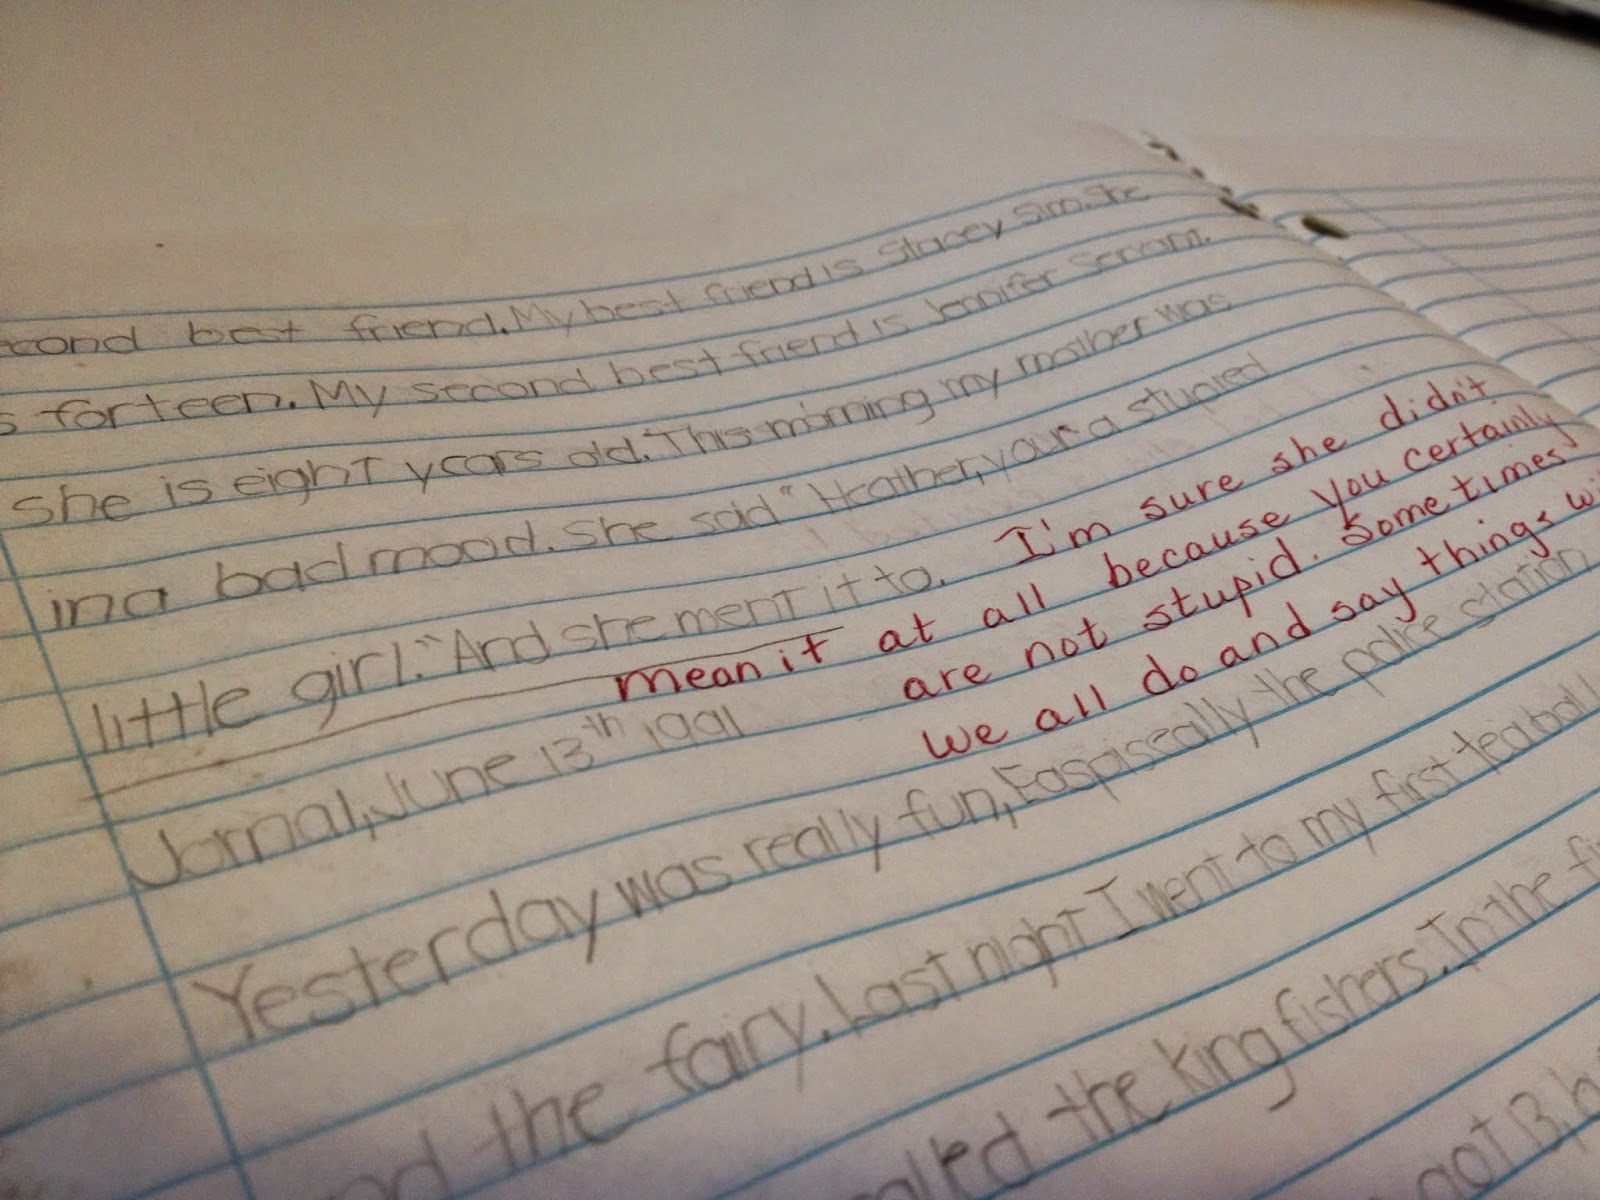 cond best friend. My best friend is Stacey Sim. She
s forteen. My second best friend is Jennifer
she is eight years old. This morning my mother was
in a bad mood. She said "Heather, your a stupied
little girl." And she ment it to. I'm sure she didn't
mean it at all because you certainly
are not stupid. Sometimes
we all do and say things
Jornal, June 13th 1991
Yesterday was really fun, Easpiseally the police station
the fairy. Last night I went to my first teaball
the king fishers. In the
got 13,